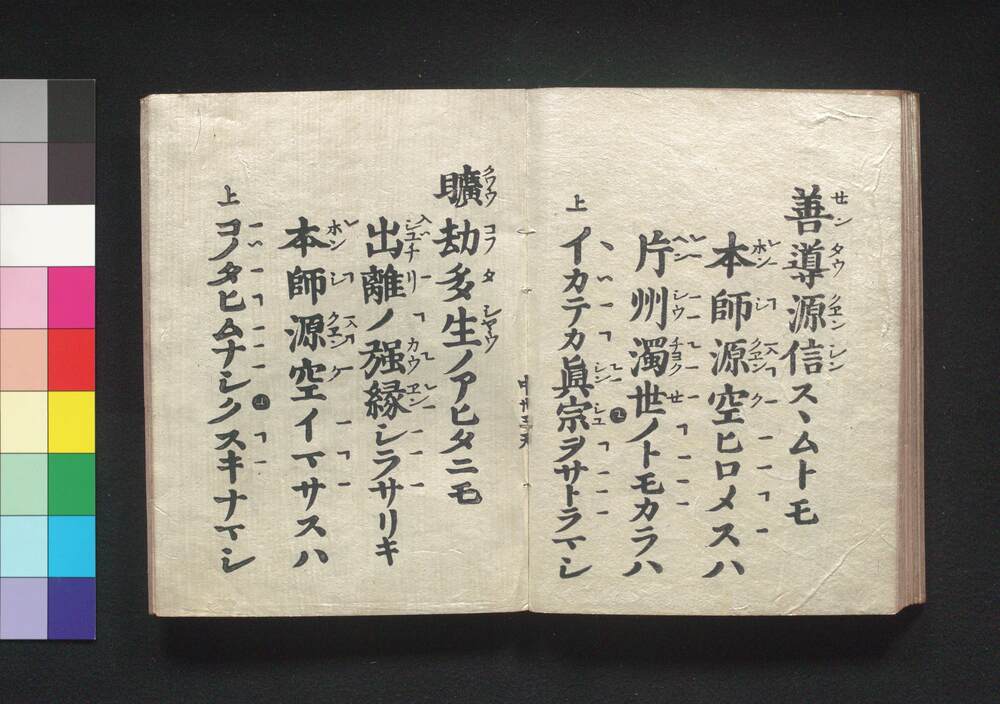 善導源信スヽムトモ
本師源空ヒロメスハ
片州濁世ノトモカラハ
上
イカテカ眞宗ヲサトラマシ
曠劫多生ノアヒタニモ
出離ノ强縁シラサリキ
本師源空イマサスハ
上
コノタヒムナシクスキナマシ